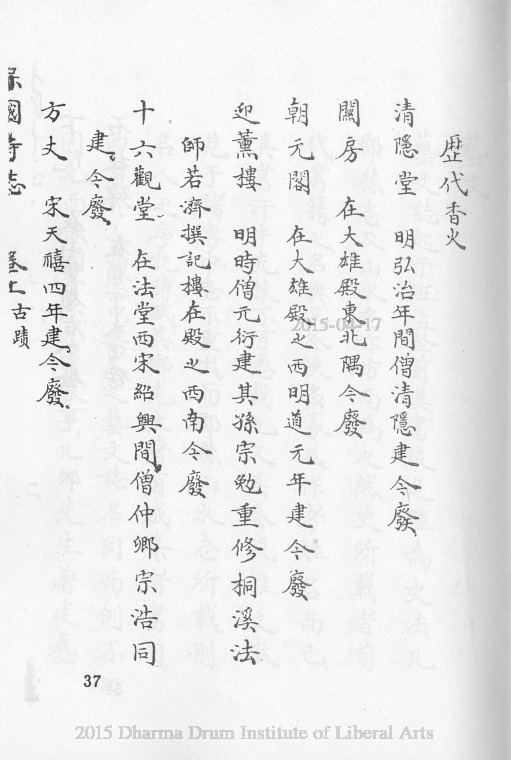 歷代香火
清隱堂 明弘治年間僧清隱建今廢
關房 在大雄殿東北隅今廢
朝元閣 在大雄殿之西明道元年建今廢
迎薰樓 明時僧元衍建其孫宗勉重修桐溪法
師若濟撰記樓在殿之西南今廢
十六觀堂 在法堂西宋紹興間僧仲卿宗浩同
建今廢
方丈 宋天禧四年建今廢
保國寺志 卷上古蹟
37
2015-04-17
2015 Dharma Drum Institute of Liberal Arts